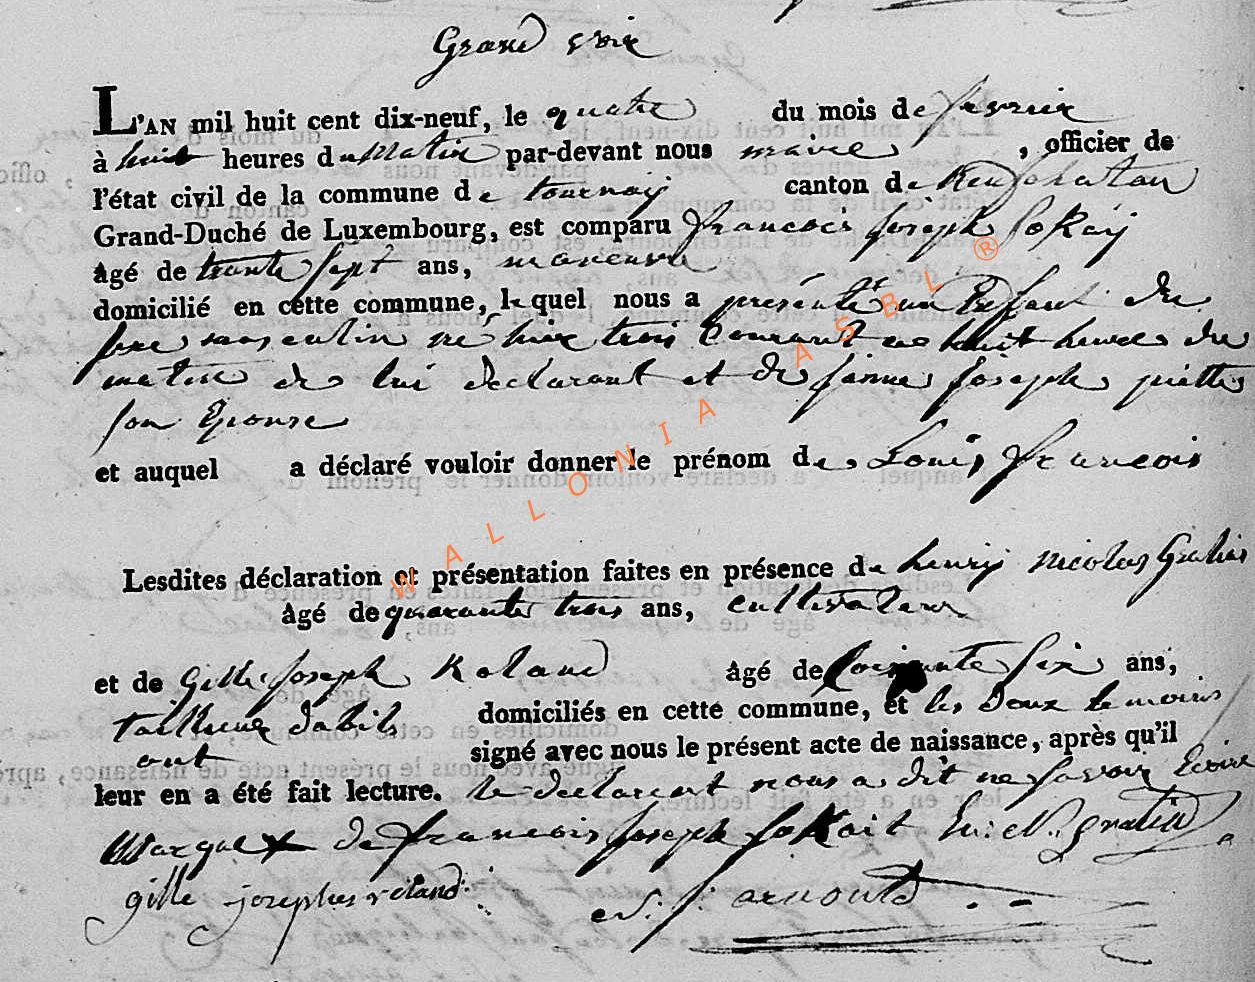 Grand voir
L'AN mil huit cent dix-neuf, le quatre du mois de fevrier
à huit heures du Matin par-devant nous maire, officier de
l'état civil de la commune de tournay canton de Neufchatau
Grand-Duché de Luxembourg, est comparu francois joseph Jokay
âgé de trante sept ans, maneuvre
domicilié en cette commune, lequel nous a présenté un Enfant du
sexe masculin né hier trois Courant a huit heures du
matin de lui declarant et de jenne joseph piette
son Epouse
et auquel a déclaré vouloir donner le prénom de Louis francois
Lesdites déclaration et présentation faites en présence de henry nicolas Gratia
âgé de quarante trois ans, cultivateur
et de Gille joseph Roland âgé de soixante six ans,
tailleur dabits domiciliés en cette commune, et les deux temoins
ont signé avec nous le présent acte de naissance, après qu'il
leur en a été fait lecture. le declarant nous a dit ne savoir Ecrire
Marque X de francois joseph Jokait h: N: gratia
gille josephes roland
J: arnould
WALLONIA ASBL ®